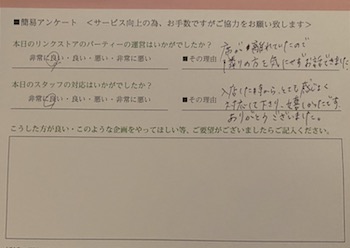 ■簡易アンケート <サービス向上の為、お手数ですがご協力をお願い致します>
本日のリンクストアのパーティーの運営はいかがでしたか?
非常に良い・良い・悪い・非常に悪い ■その理由
席が離れていたので
隣りの方を気にせずお話できました
本日のスタッフの対応はいかがでしたか?
非常に良い・良い・悪い・非常に悪い ■その理由
入店した時から、とても感じよく
対応して下さり、嬉しかったです
ありがとうございました。
こうした方が良い・このような企画をやってほしい等、ご要望がございましたらご記入ください。